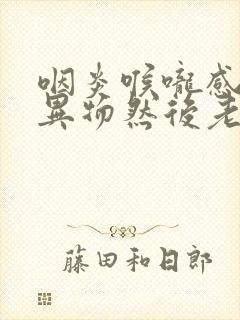 咽炎喉嚨感
異物然後老
藤田和日郎